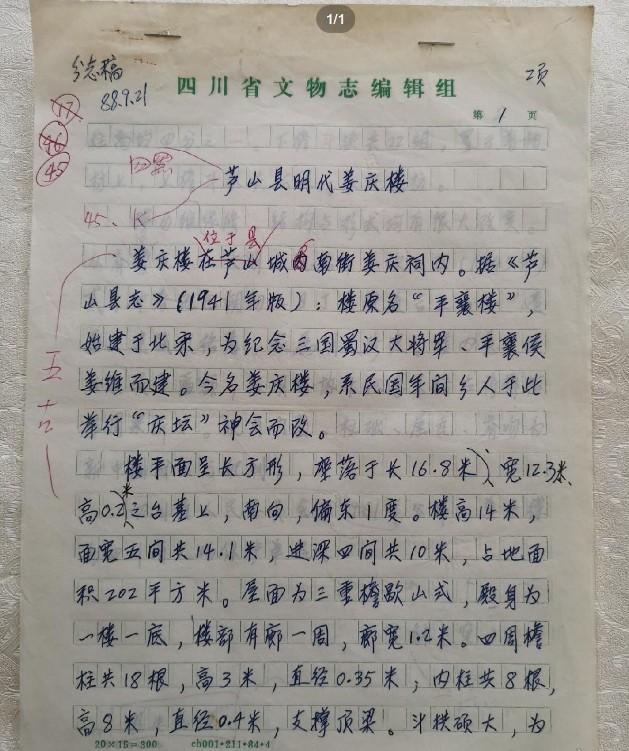 1/1
分志稿
2页
88.9.21
四川省文物志编辑组
第 1 页
17
46
45
四黑
芦山县明代姜庆楼
45、
位于县
姜庆楼在芦山城内南街姜庆祠内。据《芦
山县志》（1941年版）：楼原名“平襄楼”，
始建于北宋，为纪念三国蜀汉大将军、平襄侯
姜维而建。今名姜庆楼，系民国年间乡人于此
举行“庆坛”神会而改。
五
楼平面呈长方形，座落于长16.8米、宽12.3米、
高0.2米之台基上，南向，偏东1度。楼高14米，
面宽五间共14.1米，进深四间共10米，占地面
积202平方米。屋面为三重檐歇山式，殿身为
一楼一底，楼部有廊一周，廊宽1.2米。四周檐
柱共18根，高3米，直径0.35米，内柱共8根，
高8米，直径0.4米，支撑顶梁。斗拱硕大，为
20×15=300 cb001·211·84·4